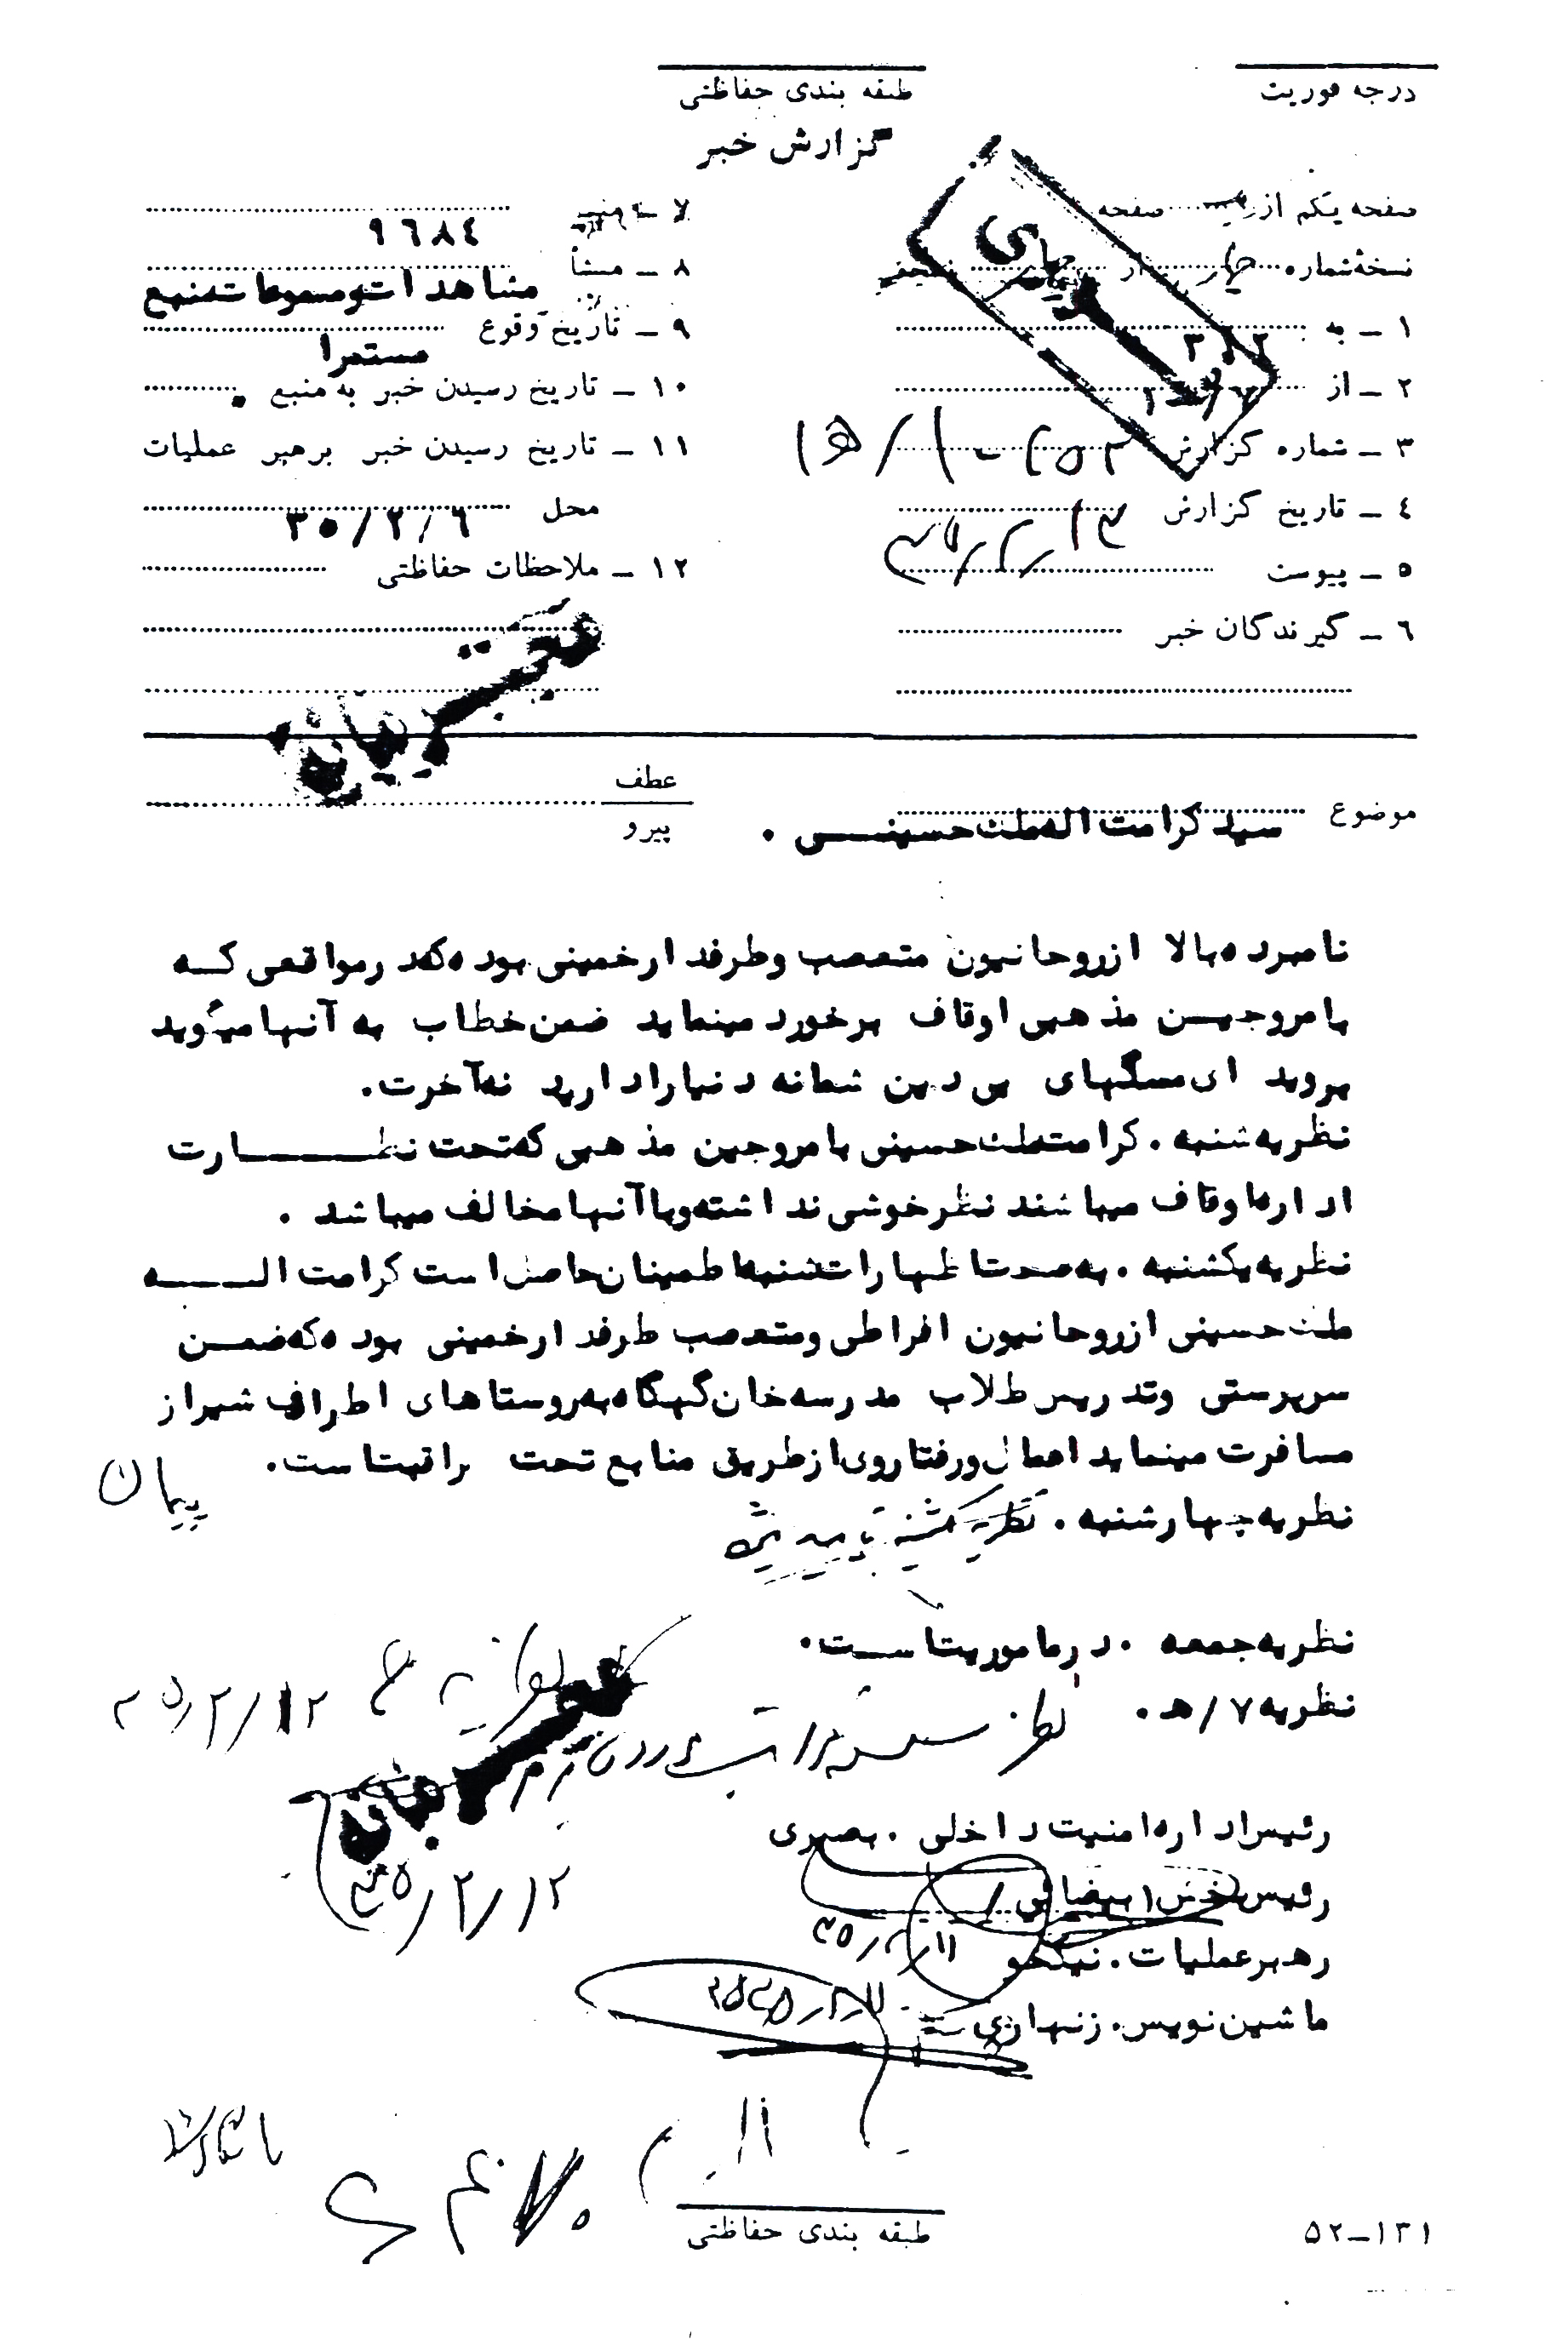 درجه فوریت
طبقه بندی حفاظتی
گزارش خبر
صفحه یکم از صفحه
نسخهٔ شماره چهار از
۱ ـ به ۳۱۲
۲ ـ از
۳ ـ شماره گزارش
٤ ـ تاریخ گزارش ۳۵/۲/۱۳
٥ ـ پیوست
٦ ـ گیرندگان خبر
۷ ـ منبع ۹٦۸٤
۸ ـ منشأ مشاهدات و مسموعات منبع
۹ ـ تاریخ وقوع مستمرا
۱۰ ـ تاریخ رسیدن خبر به منبع
۱۱ ـ تاریخ رسیدن خبر برهبر عملیات
محل ۳٥/۲/٦
۱۲ ـ ملاحظات حفاظتی
خیلی محرمانه
موضوع سید کرامت اله ملک حسینی .
عطف
پیرو
نامبرده بالا از روحانیون متعصب وطرفدار خمینی بوده که در مواقعی که
با مروجین مذهبی اوقاف برخورد مینماید ضمن خطاب به آنها میگوید
بروید ای سگهای بی دین شما نه دنیا را دارید نه آخرت.
نظریه شنبه . کرامت ملک حسینی با مروجین مذهبی که تحت نظارت
اداره اوقاف میباشند نظر خوشی نداشته و با آنها مخالف میباشد .
نظریه یکشنبه . به صحت اظهارات شنبه اطمینان حاصل است کرامت اله
ملک حسینی از روحانیون افراطی و متعصب طرفدار خمینی بوده که ضمن
سرپرستی وتدریس طلاب مدرسه خان گهگاه به روستاهای اطراف شیراز
مسافرت مینماید اعمال و رفتار وی از طریق منابع تحت مراقبت است.
نظریه چهارشنبه . نظریه یکشنبه تایید میشود
پیمان
نظریه جمعه . در ماموریت است.
نظریه ۷/ه .
۳۵/۲/۱۲
رئیس اداره امنیت داخلی . بصیری
رئیس بخش ۱ بیضائی
رهبر عملیات . نیکخو
ماشین نویس . زنهاری
۳۵/۲/۱۱
۳۵/۲/۱۲
طبقه بندی حفاظتی
۵۲ــ۱۳۱